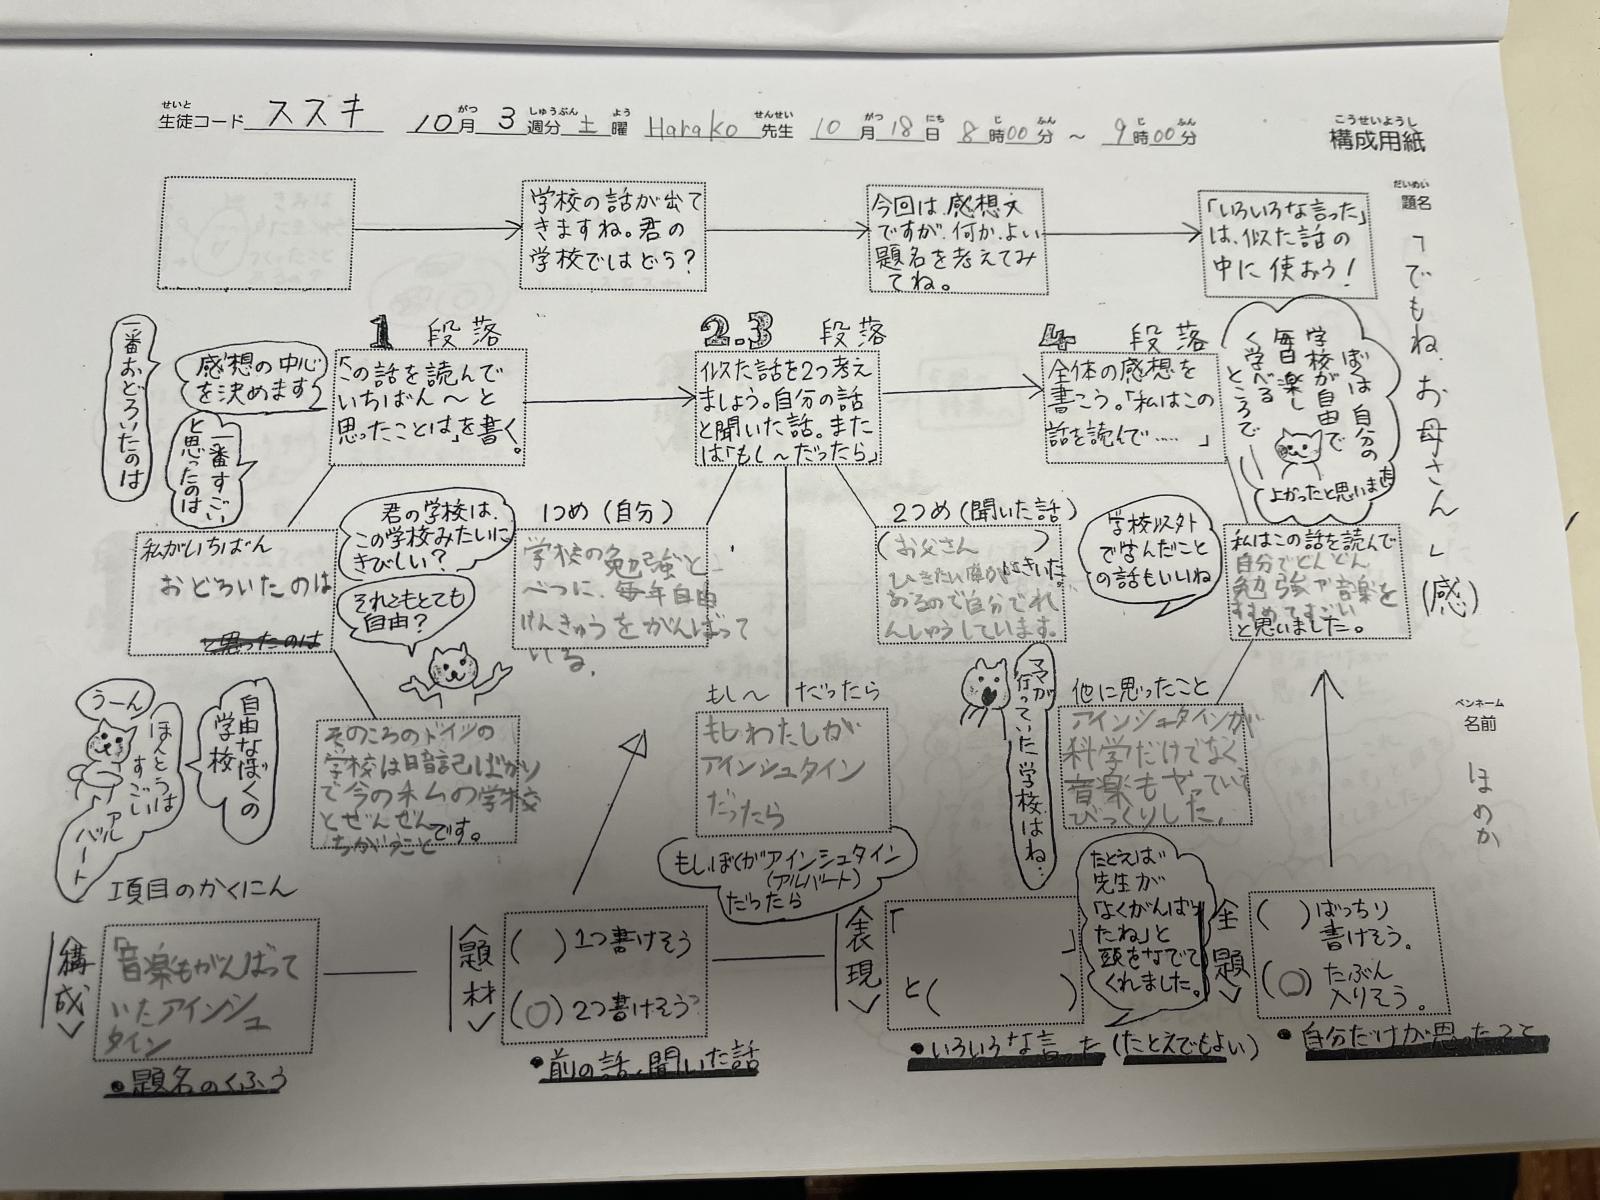 せいと
生徒コード ススキ 10月 3週分 土曜 Harako先生 10月18日 8時00分 ～ 9時00分
がつ しゅうぶん よう せんせい がつ にち じ ふん じ ふん
こうせいようし
構成用紙
だいめい
題名
「でもね、お母さん」(感)
ペンネーム
名前
ほめか
学校の話が出て
きますね。君の
学校ではどう?
今回は、感想文
ですが、何か、よい
題名を考えてみ
てね。
「いろいろな言った」
は、似た話の
中に使おう!
1 段落
「この話を読んで
いちばん～と
思ったことは」を書く。
感想の中心
を決めます
一番おどろいたのは
一番すごい
と思ったのは
2.3 段落
似た話を2つ考え
ましょう。自分の話
と聞いた話。また
は「もし～だったら」
4 段落
全体の感想を
書こう。「私はこの
話を読んで……」
ぼくは自分の
学校が自由で
毎日楽し
く学べる
ところで
よかったと思います
私がいちばん
おどろいたのは
と思ったのは
君の学校は、
この学校みたいに
きびしい?
それともとても
自由?
1つめ(自分)
学校の勉強と
べつに、毎年自由
けんきゅうをがんばって
いる。
2つめ(聞いた話)
(お父さん)
おるので自分でれ
んしゅうしています。
学校以外
で学んだこと
の話もいいね
私はこの話を読んで
自分でどんどん
勉強や音楽を
すすめてすごい
と思いました。
うーん
ほんとうは
すごい
アル
バート
自由なぼくの
学校
そのころのドイツの
学校は暗記ばかり
で今の私の学校
とぜんぜん
ちがうことです。
もし～ だったら
もしわたしが
アインシュタイン
だったら
もしぼくがアインシュタイン
(アルバート)
だったら
ママが
行っていた学校はね…
他に思ったこと
アインシュタインが
科学だけでなく
音楽もやっていて
びっくりした。
1項目のかくにん
〈構成〉
「音楽もがんばって
いたアインシュ
タイン
●題名のくふう
〈題材〉
( )1つ書けそう
(○)2つ書けそう
●前の話、聞いた話
〈表現〉
「 」
と( )
たとえば
先生が
「よくがんばっ
たね」と
頭をなでて
くれました。
●いろいろな言った(たとえでもよい)
〈主題〉
( )ばっちり
書けそう。
(○)たぶん
入りそう。
●自分だけが思ったこと